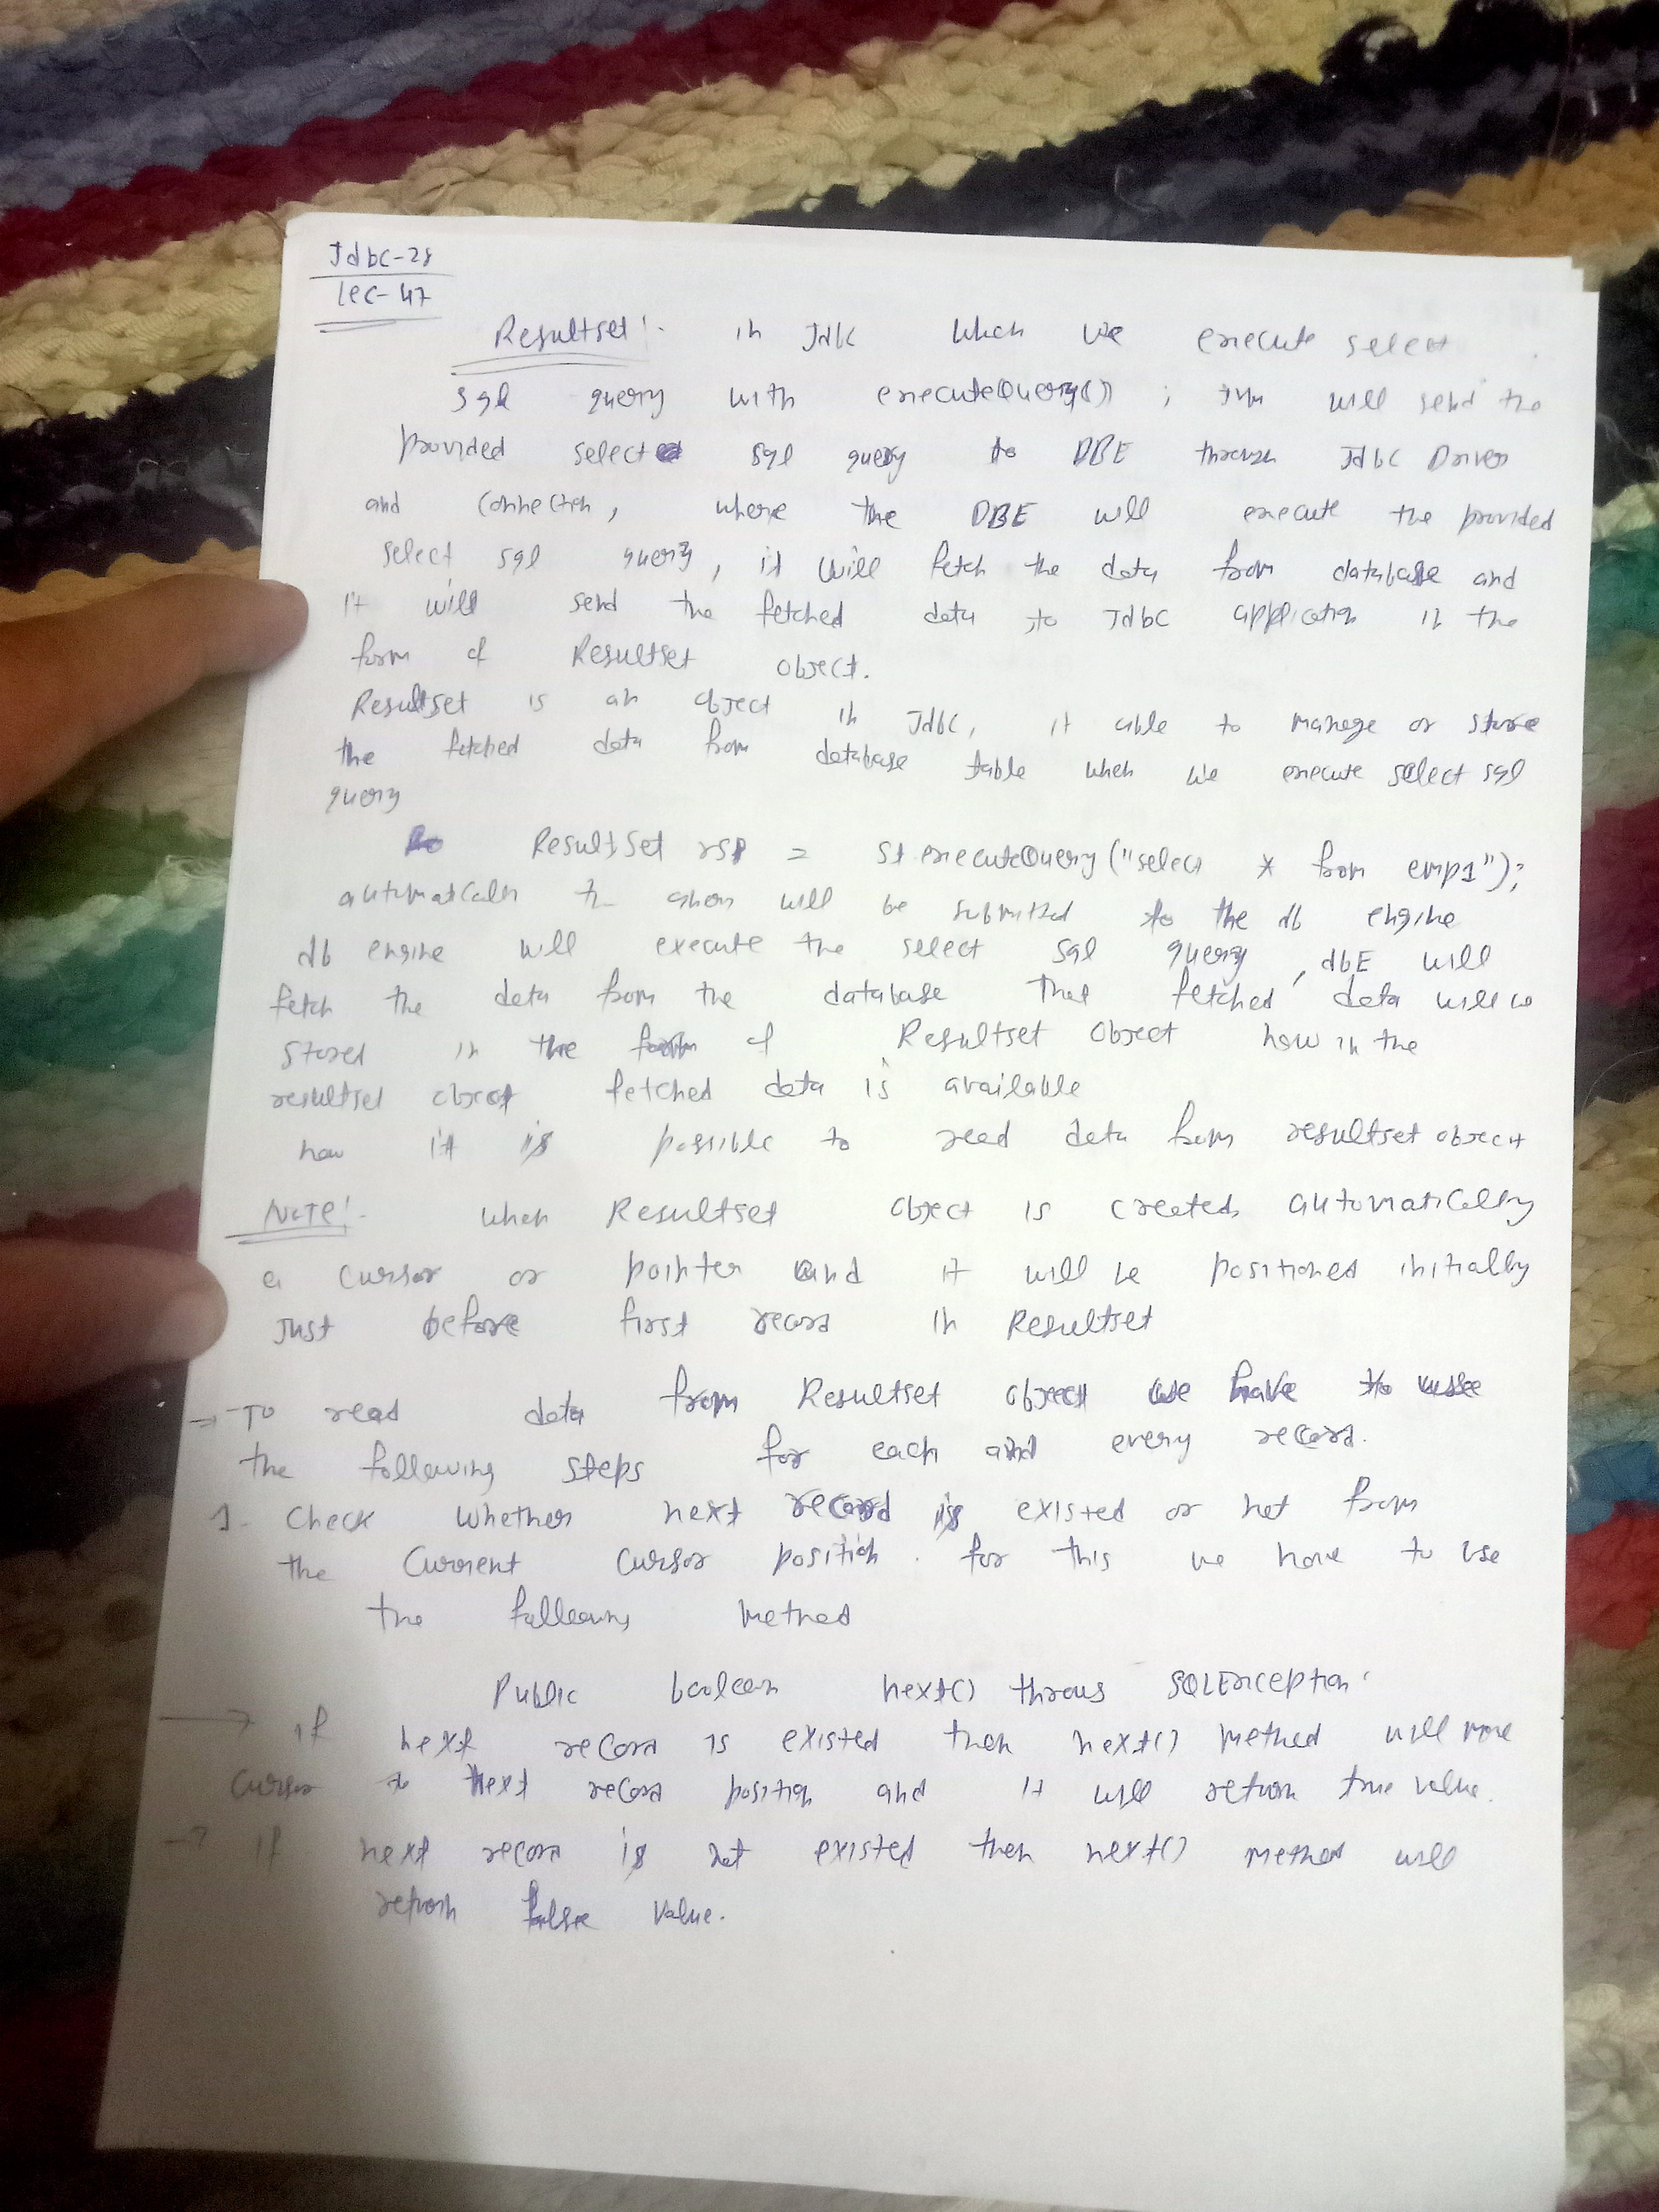 Jdbc-28
Lec-47
Resultset :- in Jdbc when we execute select
sql query with executeQuery() ; will send the
provided select sql query to DBE through Jdbc Driver
and connection, where the DBE will execute the provided
select sql query, it will fetch the data from database and
it will send the fetched data to Jdbc application in the
form of Resultset object.
Resultset is an object in Jdbc, it able to manage or store
the fetched data from database table when we execute select sql
query
ResultSet rs = st.executeQuery("select * from emp1");
automatically will be submitted to the db engine
db engine will execute the select sql query, dbE will
fetch the data from the database that fetched data will be
stored in the form of Resultset object now in the
resultset object fetched data is available
now it is possible to read data from resultset object
NOTE :- when Resultset object is created automatically
a cursor or pointer and it will be positioned initially
Just before first record in Resultset
→ To read data from Resultset object we have to use
the following steps for each and every record.
1. Check whether next record is existed or not from
the current cursor position. for this we have to use
the following method
Public boolean next() throws SQLException
→ if next record is existed then next() method will move
cursor to next record position and it will return true value.
→ if next record is not existed then next() method will
return false value.